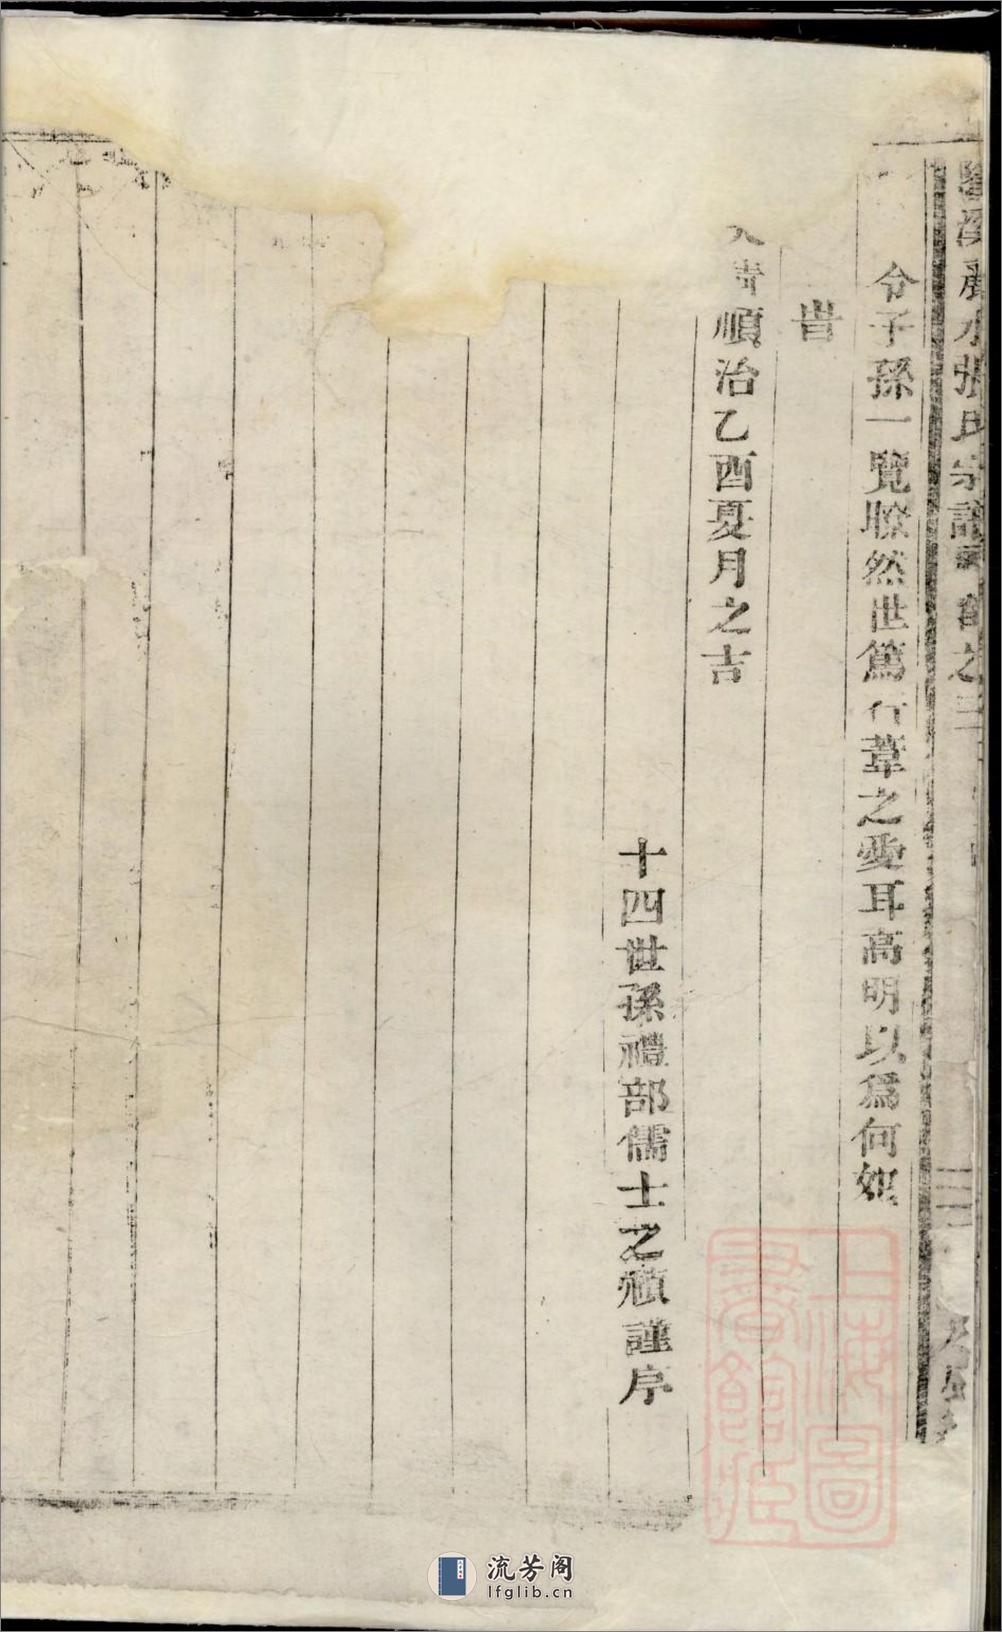 張氏宗譜
令子孫一覽瞭然世篤行葦之愛耳高明以為何如
旹
大清順治乙酉夏月之吉
十四世孫禮部儒士之禎謹序
上海圖書館藏
流芳阁
lfglib.cn